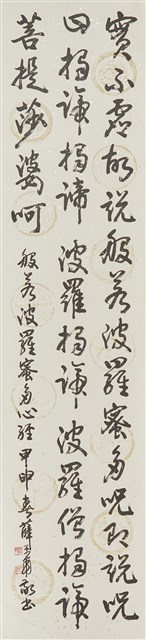 實不虛故說般若波羅蜜多咒即說咒
曰揭諦揭諦波羅揭諦波羅僧揭諦
菩提莎婆呵
般若波羅蜜多心經甲申春薛